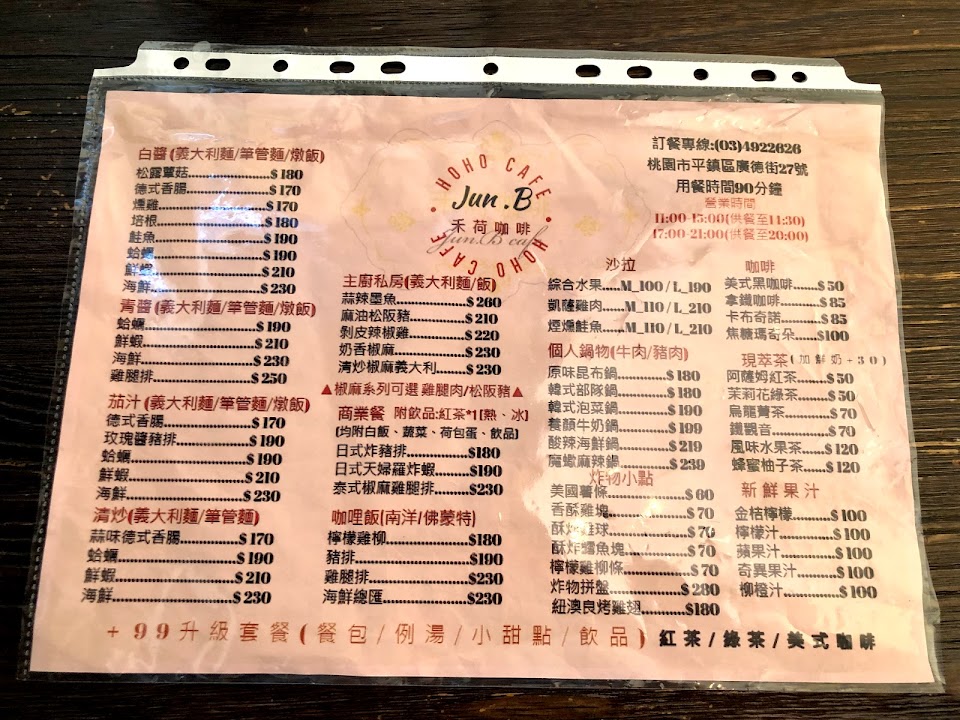 白醬(義大利麵/筆管麵/燉飯)
松露蕈菇....................$180
德式香腸....................$170
燻雞....................$170
培根....................$180
鮭魚....................$190
蛤蠣....................$190
鮮蝦....................$210
海鮮....................$230
青醬(義大利麵/筆管麵/燉飯)
蛤蠣....................$190
鮮蝦....................$210
海鮮....................$230
雞腿排....................$250
茄汁(義大利麵/筆管麵/燉飯)
德式香腸....................$170
玫瑰醬豬排....................$190
蛤蠣....................$190
鮮蝦....................$210
海鮮....................$230
清炒(義大利麵/筆管麵)
蒜味德式香腸....................$170
蛤蠣....................$190
鮮蝦....................$210
海鮮....................$230
HOHO CAFE
Jun.B
禾荷咖啡
Jun.B cafe
HOHO CAFE
主廚私房(義大利麵/飯)
蒜辣墨魚....................$260
麻油松阪豬....................$210
剝皮辣椒雞....................$220
奶香椒麻....................$230
清炒椒麻義大利......$230
▲椒麻系列可選 雞腿肉/松阪豬▲
商業餐 附飲品:紅茶*1[熱、冰]
(均附白飯、蔬菜、荷包蛋、飲品)
日式炸豬排....................$180
日式天婦羅炸蝦.........$190
泰式椒麻雞腿排.........$230
咖哩飯(南洋/佛蒙特)
檸檬雞柳....................$180
豬排....................$190
雞腿排....................$230
海鮮總匯....................$230
訂餐專線:(03)4922626
桃園市平鎮區廣德街27號
用餐時間90分鐘
營業時間
11:00-15:00(供餐至14:30)
17:00-21:00(供餐至20:00)
沙拉
綜合水果....M_100/L_190
凱薩雞肉....M_110/L_210
煙燻鮭魚....M_110/L_210
個人鍋物(牛肉/豬肉)
原味昆布鍋..............$180
韓式部隊鍋..............$180
韓式泡菜鍋..............$190
養顏牛奶鍋..............$199
酸辣海鮮鍋..............$219
魔蠍麻辣鍋..............$239
炸物小點
美國薯條..............$60
香酥雞塊..............$70
酥炸..球..............$70
酥炸鱈魚塊..............$70
檸檬雞柳條..............$70
炸物拼盤..............$280
紐澳良烤雞翅.......$180
咖啡
美式黑咖啡.......$50
拿鐵咖啡.......$85
卡布奇諾.......$85
焦糖瑪奇朵.......$100
現萃茶(加鮮奶+30)
阿薩姆紅茶........$50
茉莉花綠茶........$50
烏龍菁茶........$70
鐵觀音........$70
風味水果茶......$120
蜂蜜柚子茶......$120
新鮮果汁
金桔檸檬..........$100
檸檬汁..........$100
蘋果汁..........$100
奇異果汁..........$100
柳橙汁..........$100
+99升級套餐(餐包/例湯/小甜點/飲品) 紅茶/綠茶/美式咖啡